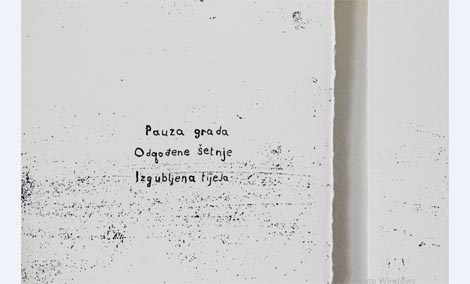 Pauza grada
Odgođene šetnje
Izgubljena tijela
te Windows